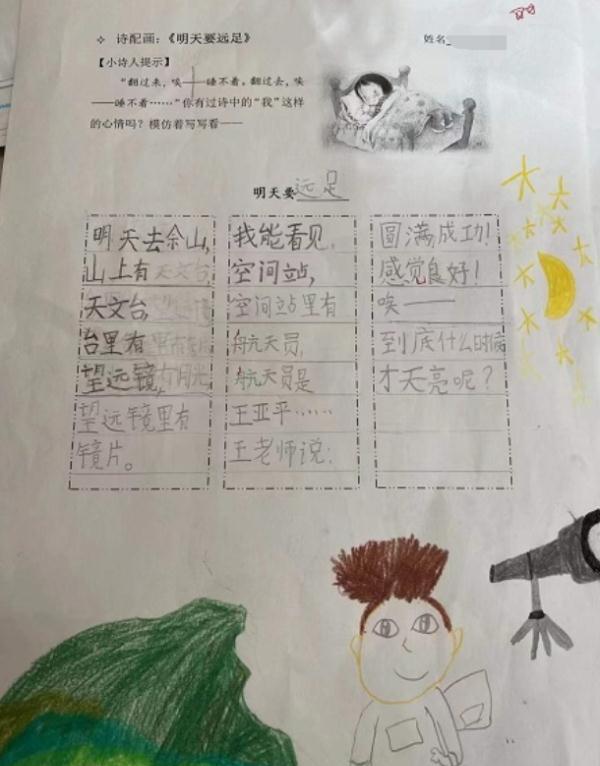 ✧ 诗配画：《明天要远足》
姓名
【小诗人提示】
“翻过来，唉——睡不着，翻过去，唉
——睡不着……”你有过诗中的“我”这样
的心情吗？模仿着写写看——
明天要远足
明天去佘山，
山上有天文台，
天文台，
台里有
望远镜，
望远镜里有
镜片。
我能看见，
空间站，
空间站里有
航天员，
航天员是
王亚平……
王老师说：
圆满成功！
感觉良好！
唉——
到底什么时候
才天亮呢？